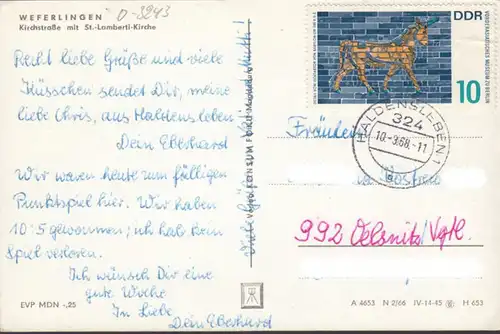 WEFERLINGEN
Kirchstraße mit St.-Lamberti-Kirche
O-3243
Recht liebe Grüße und viele
Küsschen sendet Dir, meine
liebe Chris, aus Haldensleben
Dein Eberhard
Wir waren heute zum fälligen
Punktspiel hier. Wir haben
10:5 gewonnen; ich hab kein
Spiel verloren.
Ich wünsch Dir eine
gute Woche
In Liebe
Dein Eberhard
EVP MDN -,25
VERLAG KONSUM
VORDERASIATISCHES MUSEUM ZU BERLIN
DDR
10
HALDENSLEBEN 1
324
10.-3.68.-11
Fräulein
992 Oelsnitz/Vgtl.
A 4653 N 2/66 IV-14-45 H 653